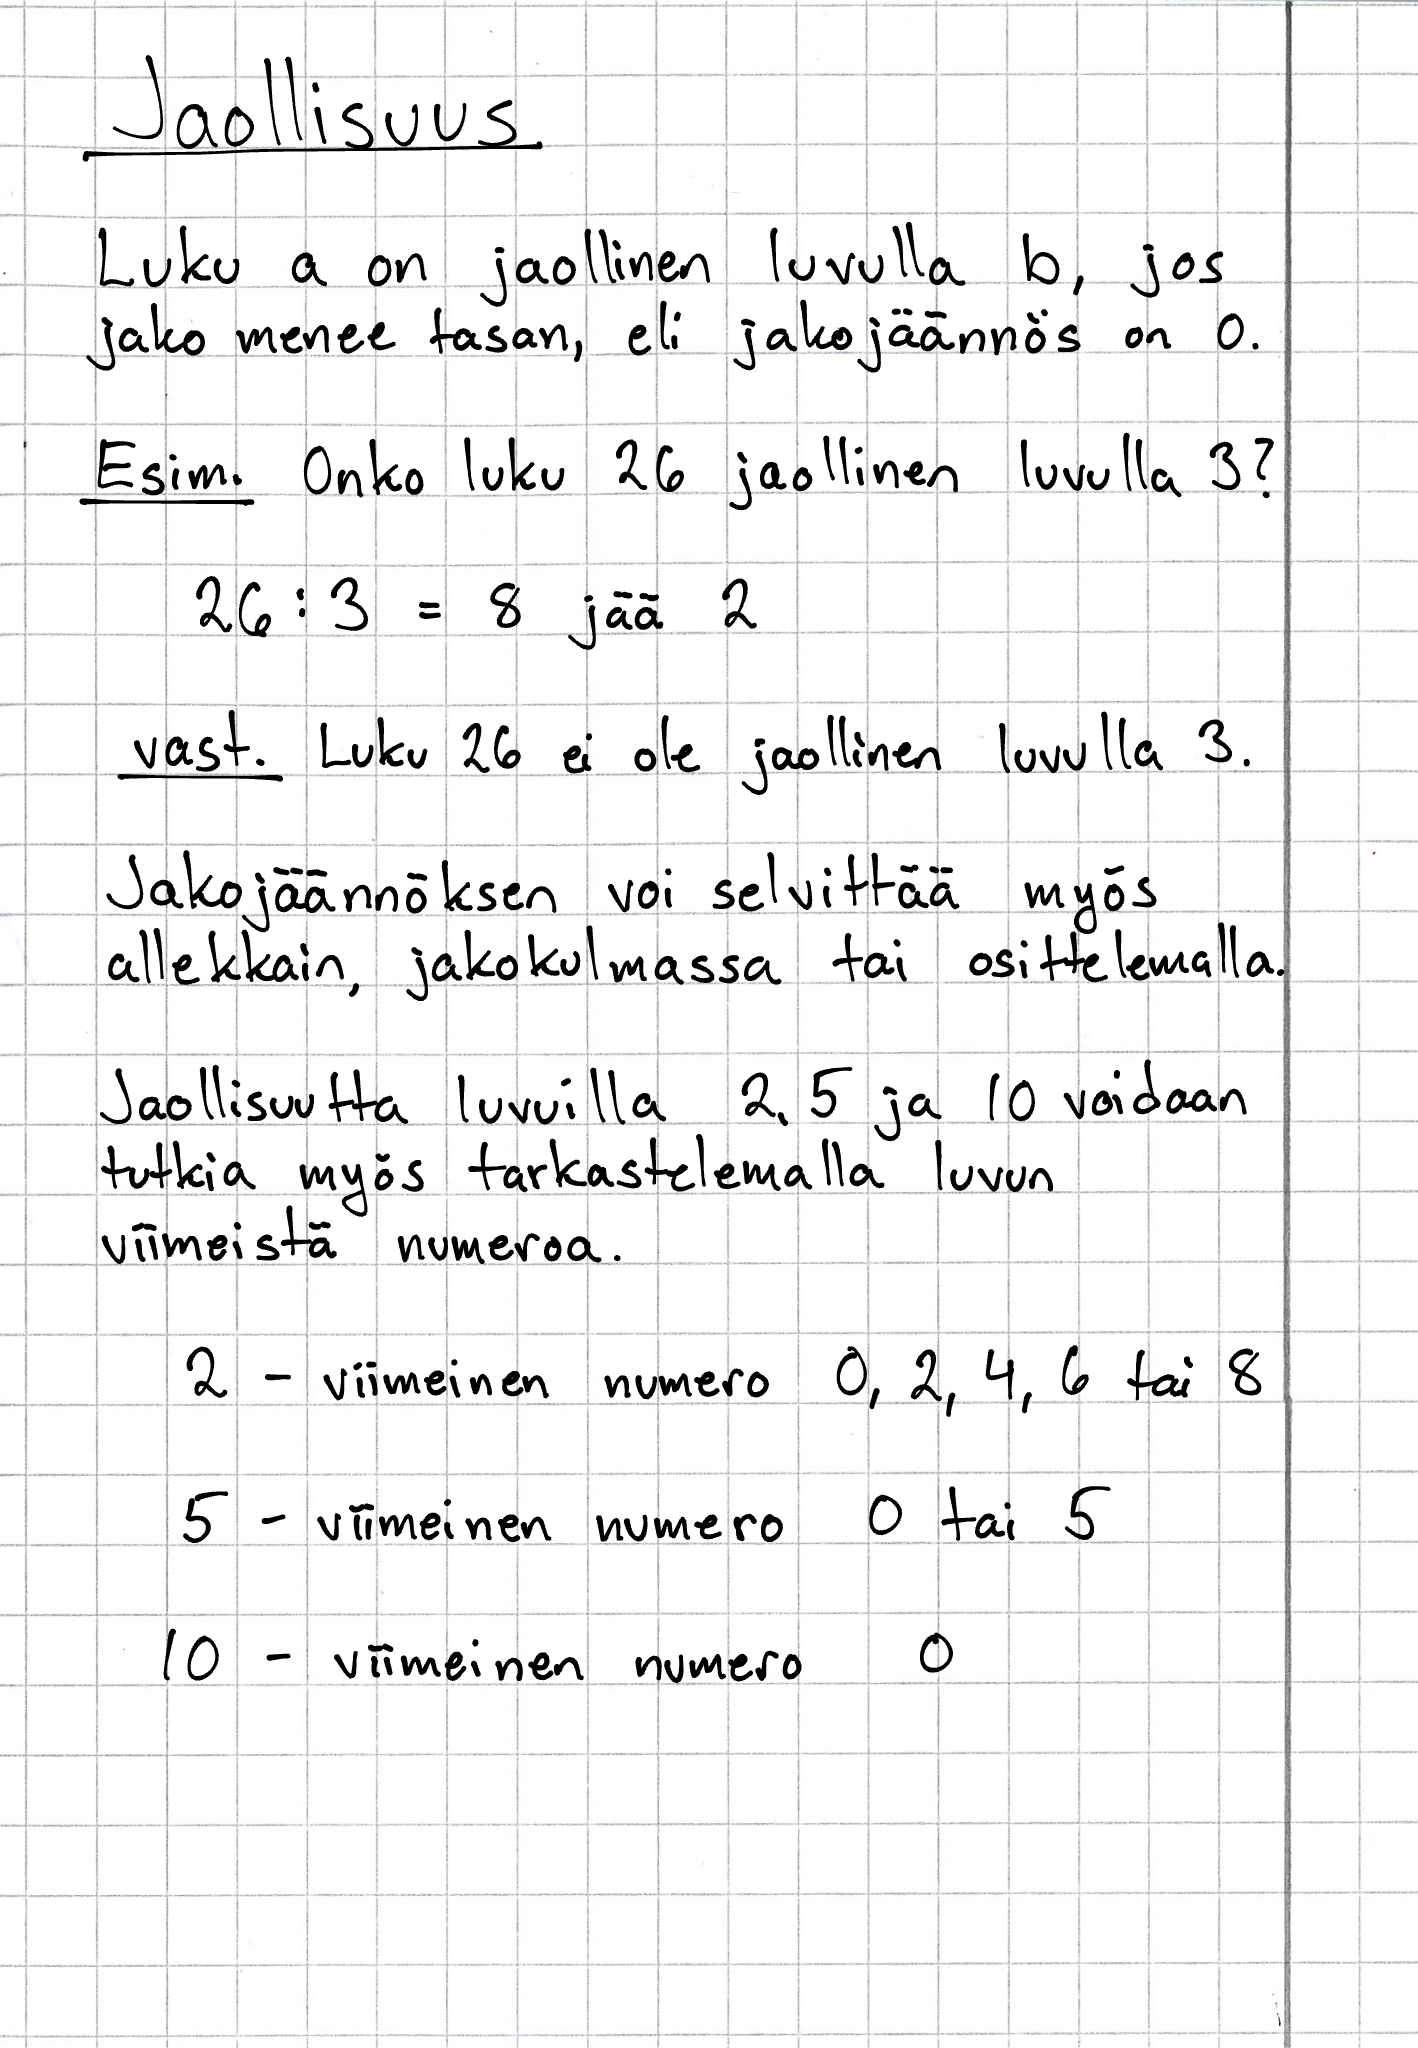 Jaollisuus
Luku a on jaollinen luvulla b, jos
jako menee tasan, eli jakojäännös on 0.
Esim. Onko luku 26 jaollinen luvulla 3?
26 : 3 = 8 jää 2
vast. Luku 26 ei ole jaollinen luvulla 3.
Jakojäännöksen voi selvittää myös
allekkain, jakokulmassa tai osittelemalla.
Jaollisuutta luvuilla 2, 5 ja 10 voidaan
tutkia myös tarkastelemalla luvun
viimeistä numeroa.
2 - viimeinen numero 0, 2, 4, 6 tai 8
5 - viimeinen numero 0 tai 5
10 - viimeinen numero 0